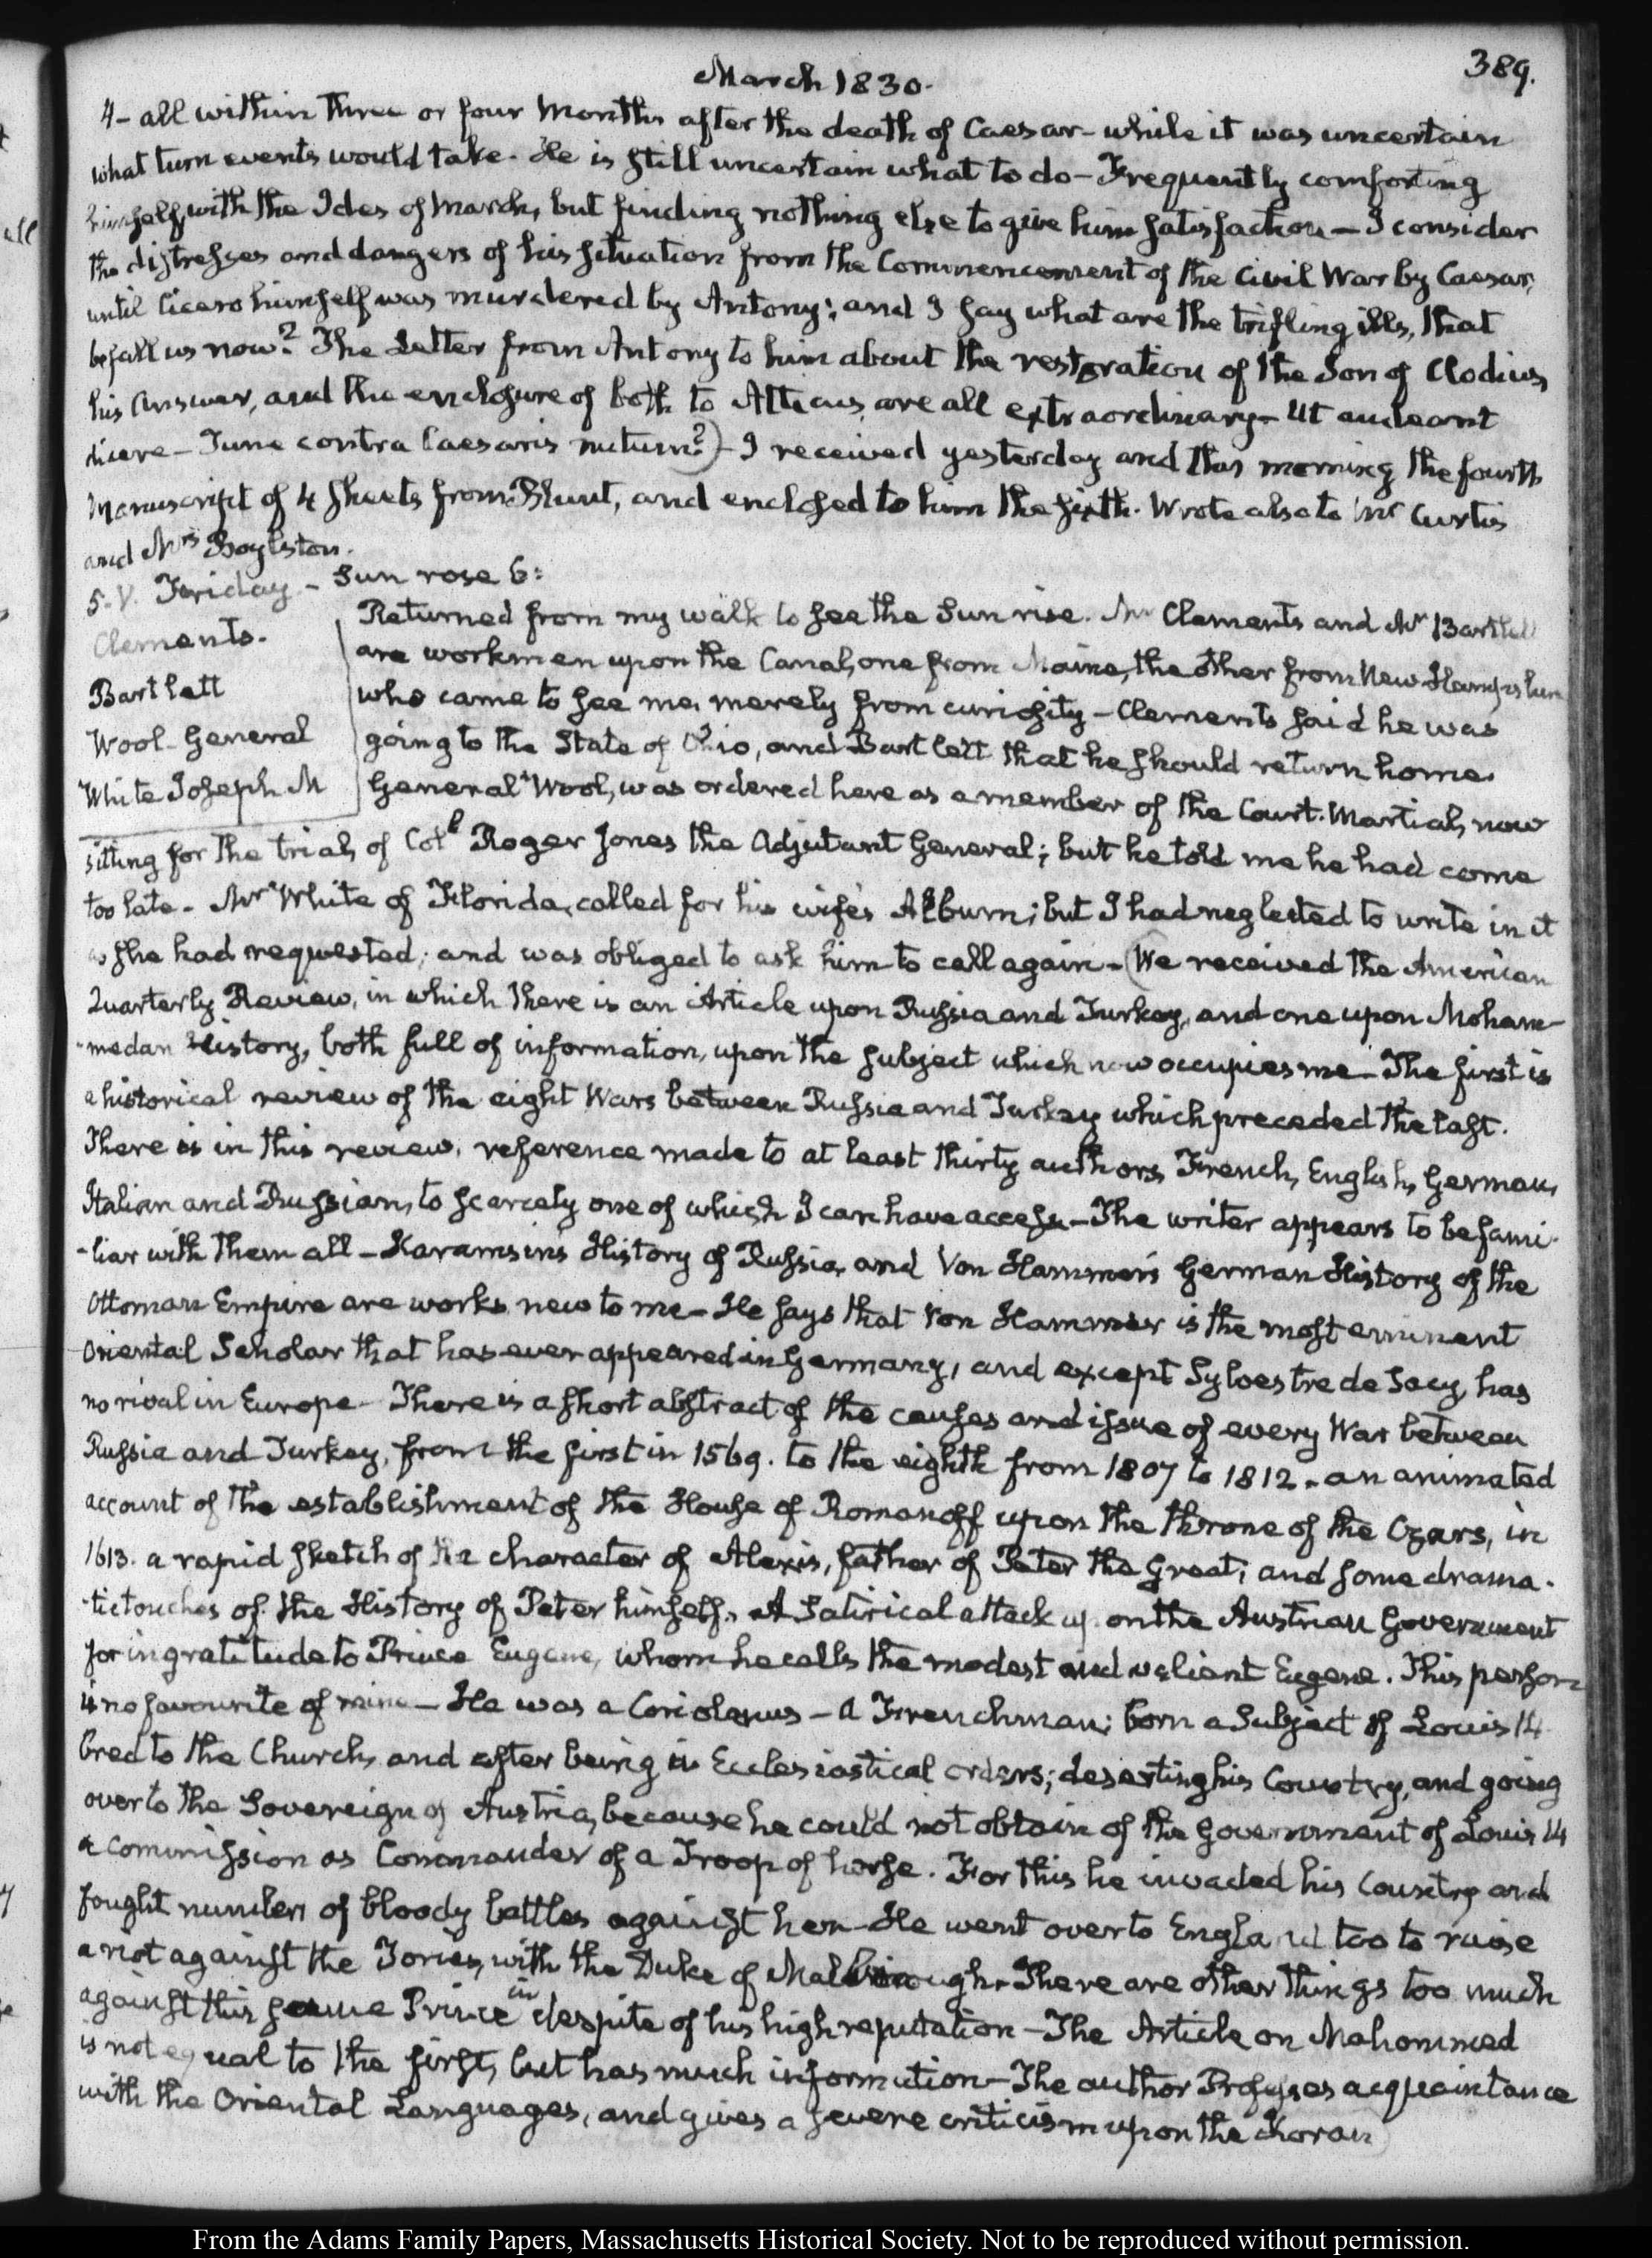 March 1830.
389.
4- all within three or four Months after the death of Caesar- while it was uncertain
what turn events would take. He is still uncertain what to do- Frequently comforting
himself with the Ides of March, but finding nothing else to give him satisfaction- I consider
the distresses and dangers of his situation from the Commencement of the Civil War by Caesar,
until Cicero himself was murdered by Antony; and I say what are the trifling ills, that
befall us now? The Letter from Antony to him about the restoration of the Son of Clodius,
his Answer, and the enclosure of both to Atticus, are all extraordinary- Ut audeant
dicere- Tune contra Caesaris nutum?)- I received yesterday and this morning the fourth
Manuscript of 4 sheets from Blunt, and enclosed to him the sixth. Wrote also to Mr Curtis
and Mrs Boylston.
5. V. Friday- Sun rose 6:
Clements.
Bartlett
Wool- General
White Joseph M
Returned from my walk to see the Sun rise. Mr Clements and Mr Bartlett
are workmen upon the Canal, one from Maine, the other from New-Hampshire
who came to see me, merely from curiosity- Clements said he was
going to the State of Ohio, and Bartlett that he should return home.
General Wool, was ordered here as a member of the Court-Martial, now
sitting for the trial, of Coll Roger Jones the Adjutant General; but he told me he had come
too late- Mr White of Florida, called for his wife's Album; but I had neglected to write in it
as she had requested; and was obliged to ask him to call again- (We received the American
Quarterly Review, in which there is an Article upon Russia and Turkey, and one upon Moham-
-medan History, both full of information, upon the subject which now occupies me- The first is
a historical review of the eight Wars between Russia and Turkey which preceded the last.
There is in this review, reference made to at least thirty authors, French, English, German,
Italian and Russian, to scarcely one of which I can have access- The writer appears to be fami-
-liar with them all- Karamsin's History of Russia, and Von Hammer's German History of the
Ottoman Empire are works new to me- He says that Von Hammer is the most eminent
Oriental Scholar that has ever appeared in Germany, and except Sylvestre de Sacy, has
no rival in Europe- There is a short abstract of the causes and issue of every War between
Russia and Turkey, from the first in 1569. to the eighth from 1807 to 1812- an animated
account of the establishment of the House of Romanoff upon the throne of the Czars, in
1613. a rapid sketch of the character of Alexis, father of Peter the Great; and some drama-
-tic touches of the History of Peter himself. A Satirical attack upon the Austrian Government
for ingratitude to Prince Eugene, whom he calls the modest and valiant Eugene. This person
is no favourite of mine- He was a Coriolanus- a Frenchman; born a Subject of Louis 14
bred to the Church, and after being in Ecclesiastical orders; deserting his Country, and going
over to the Sovereign of Austria, because he could not obtain of the Government of Louis 14
a commission as Commander of a Troop of horse. For this he invaded his Country and
fought numbers of bloody battles against her- He went over to England too to raise
a riot against the Tories, with the Duke of Malbrough. There are other things too much
against this same Prince in despite of his high reputation- The Article on Mahommed
is not equal to the first, but has much information- The author Professes acquaintance
with the Oriental Languages, and gives a severe criticism upon the Koran)
From the Adams Family Papers, Massachusetts Historical Society. Not to be reproduced without permission.